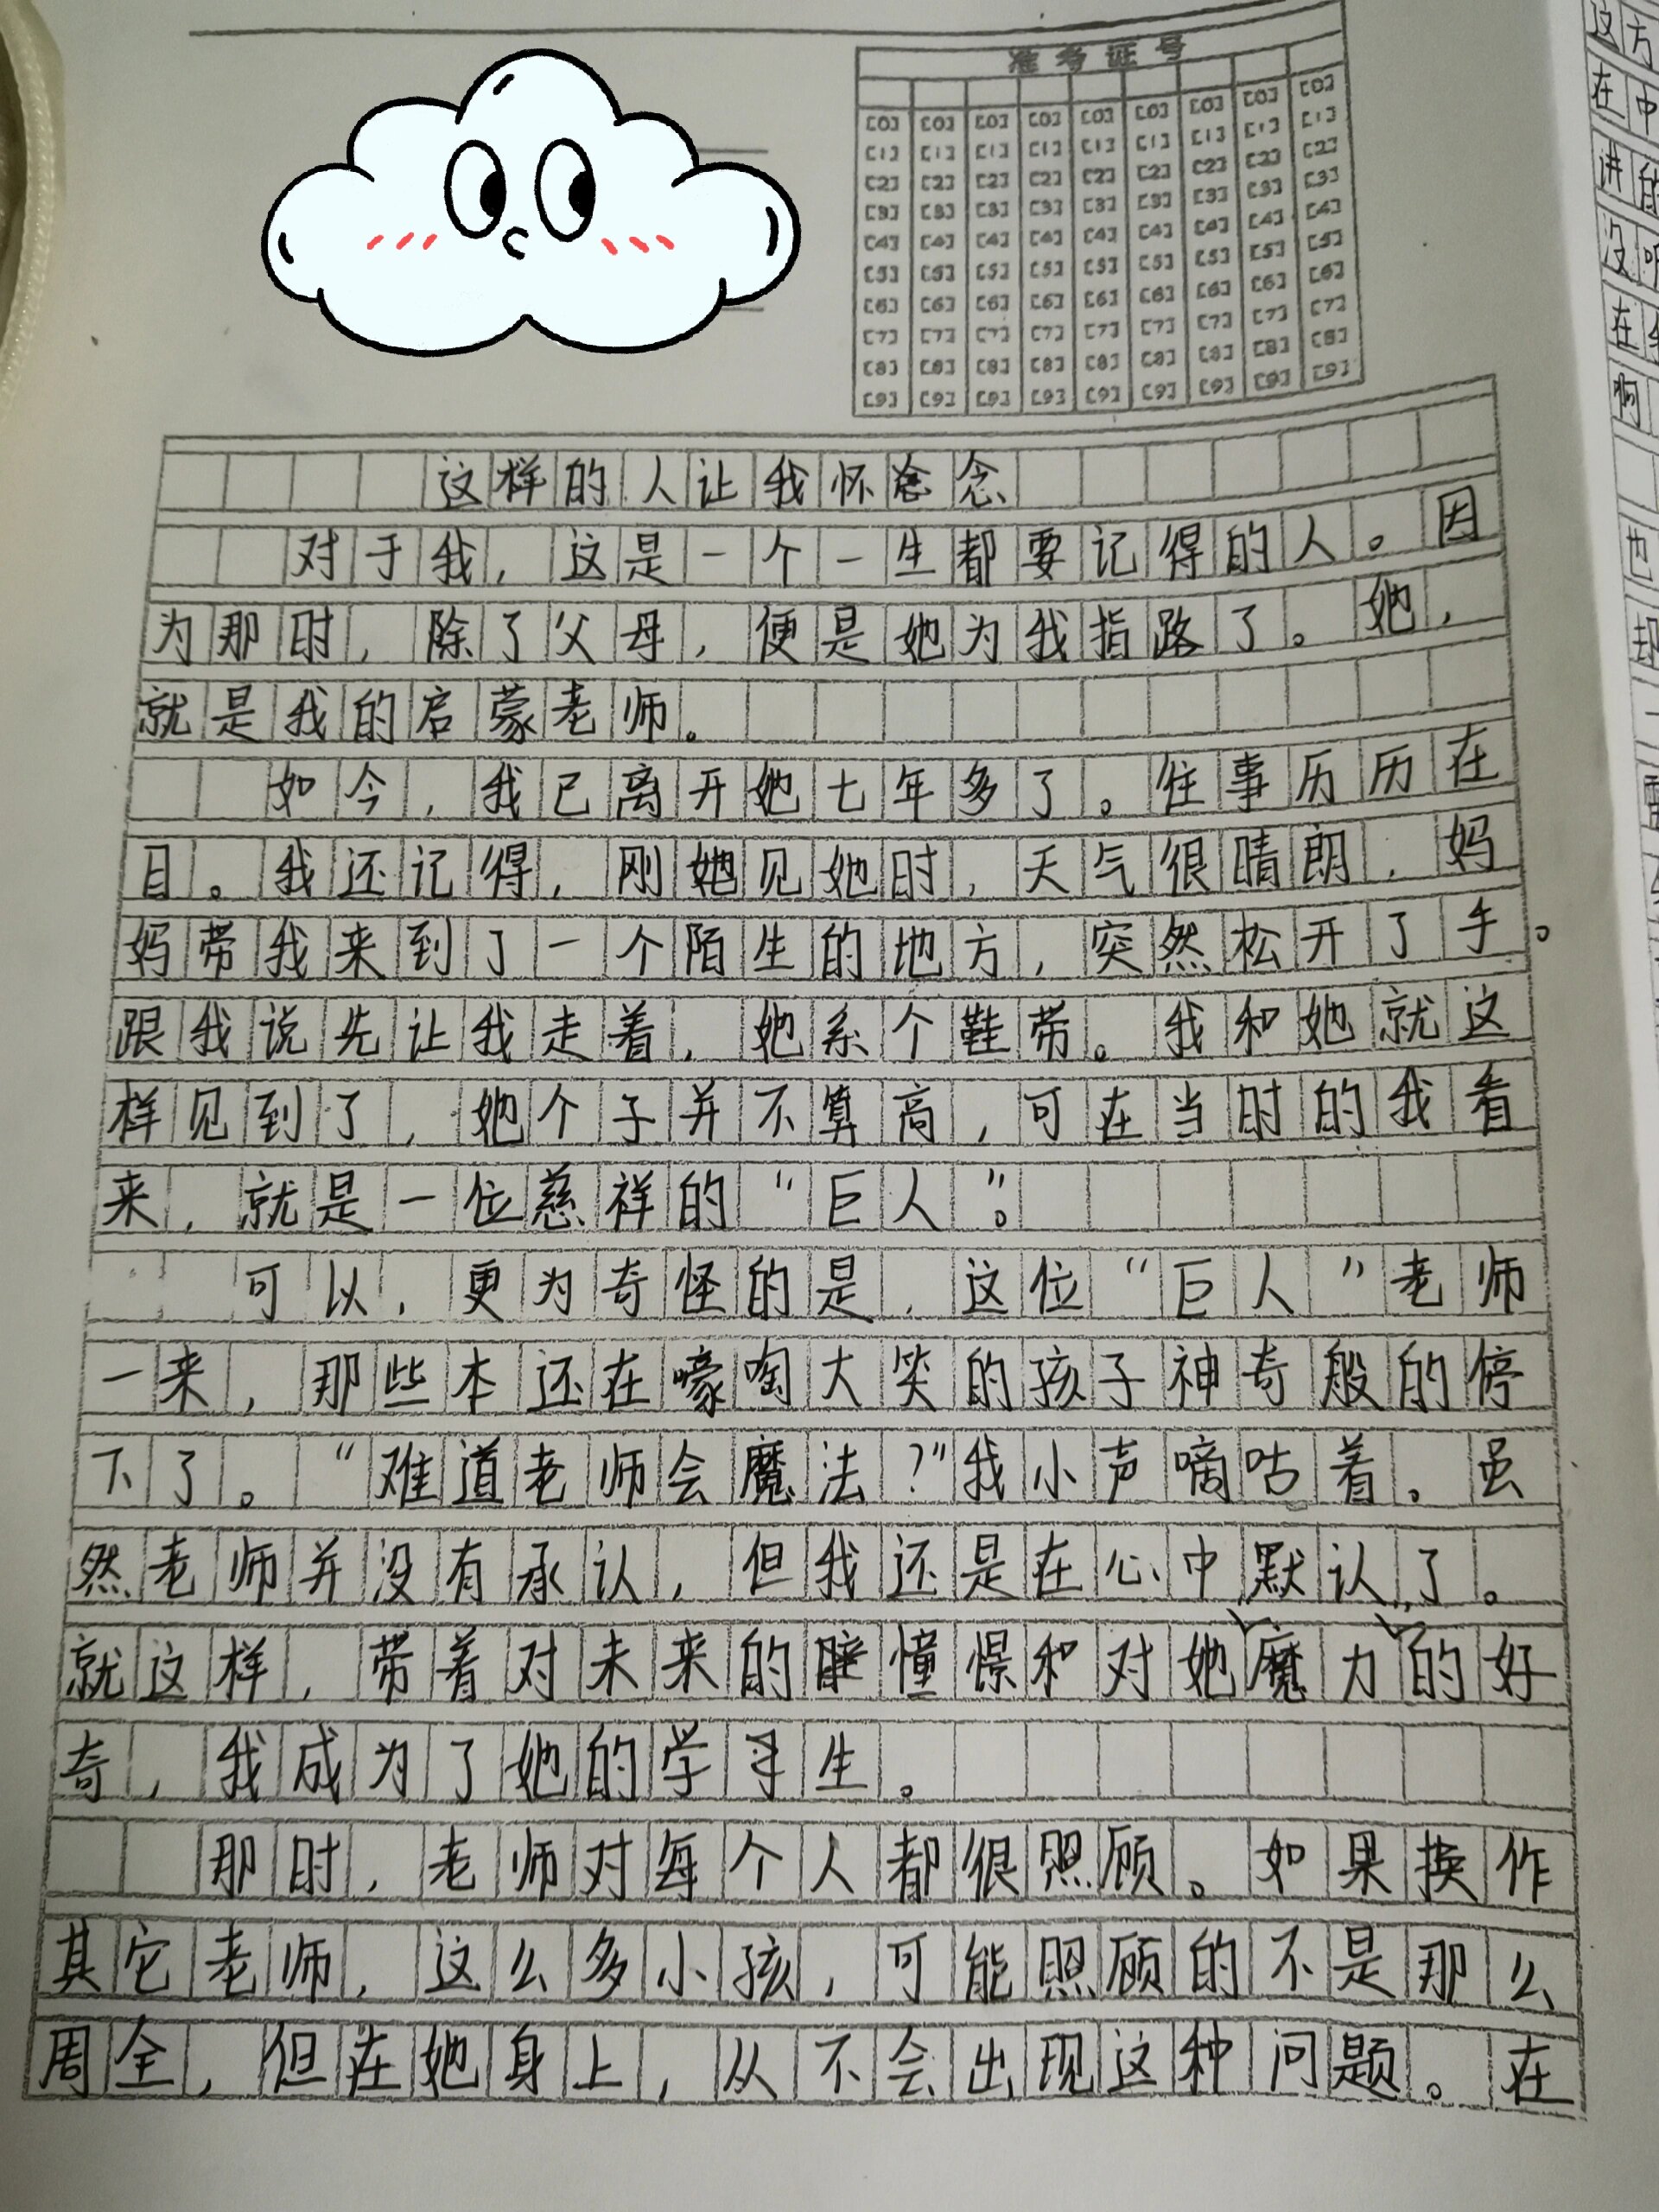 准考证号
[0] [0] [0] [0] [0] [0] [0] [0] [0]
[1] [1] [1] [1] [1] [1] [1] [1] [1]
[2] [2] [2] [2] [2] [2] [2] [2] [2]
[3] [3] [3] [3] [3] [3] [3] [3] [3]
[4] [4] [4] [4] [4] [4] [4] [4] [4]
[5] [5] [5] [5] [5] [5] [5] [5] [5]
[6] [6] [6] [6] [6] [6] [6] [6] [6]
[7] [7] [7] [7] [7] [7] [7] [7] [7]
[8] [8] [8] [8] [8] [8] [8] [8] [8]
[9] [9] [9] [9] [9] [9] [9] [9] [9]
这样的人让我怀念
对于我，这是一个一生都要记得的人。因
为那时，除了父母，便是她为我指路了。她，
就是我的启蒙老师。
如今，我已离开她七年多了。往事历历在
目。我还记得，刚见她时，天气很晴朗，妈
妈带我来到了一个陌生的地方，突然松开了手。
跟我说先让我走着，她系个鞋带。我和她就这
样见到了，她个子并不算高，可在当时的我看
来，就是一位慈祥的“巨人”。
可以，更为奇怪的是，这位“巨人”老师
一来，那些本还在嚎啕大笑的孩子神奇般的停
下了。“难道老师会魔法？”我小声嘀咕着。虽
然老师并没有承认，但我还是在心中默认了。
就这样，带着对未来的憧憬和对她“魔力”的好
奇，我成为了她的学生。
那时，老师对每个人都很照顾。如果换作
其它老师，这么多小孩，可能照顾的不是那么
周全，但在她身上，从不会出现这种问题。在
这方
在中
进
没
在
啊
也